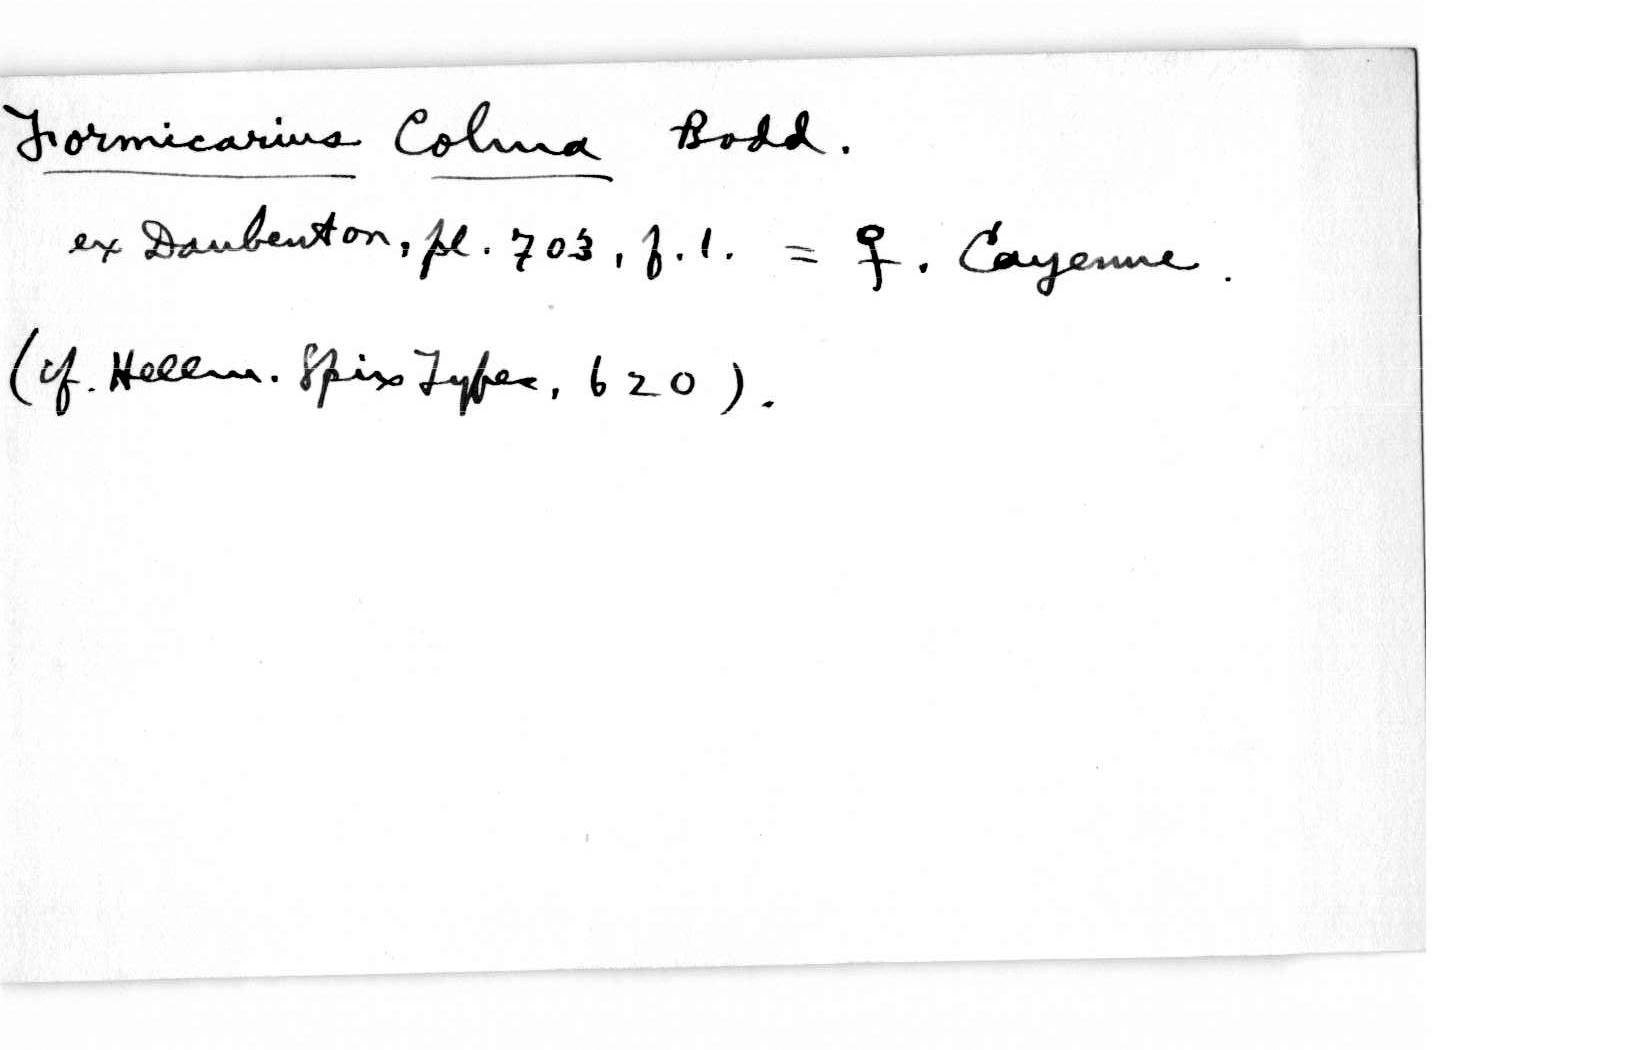 Formicarius Colma Bodd.
ex Daubenton, pl. 703, f. 1. = ♀. Cayenne.
(cf. Hellm. Spix Types, 620).